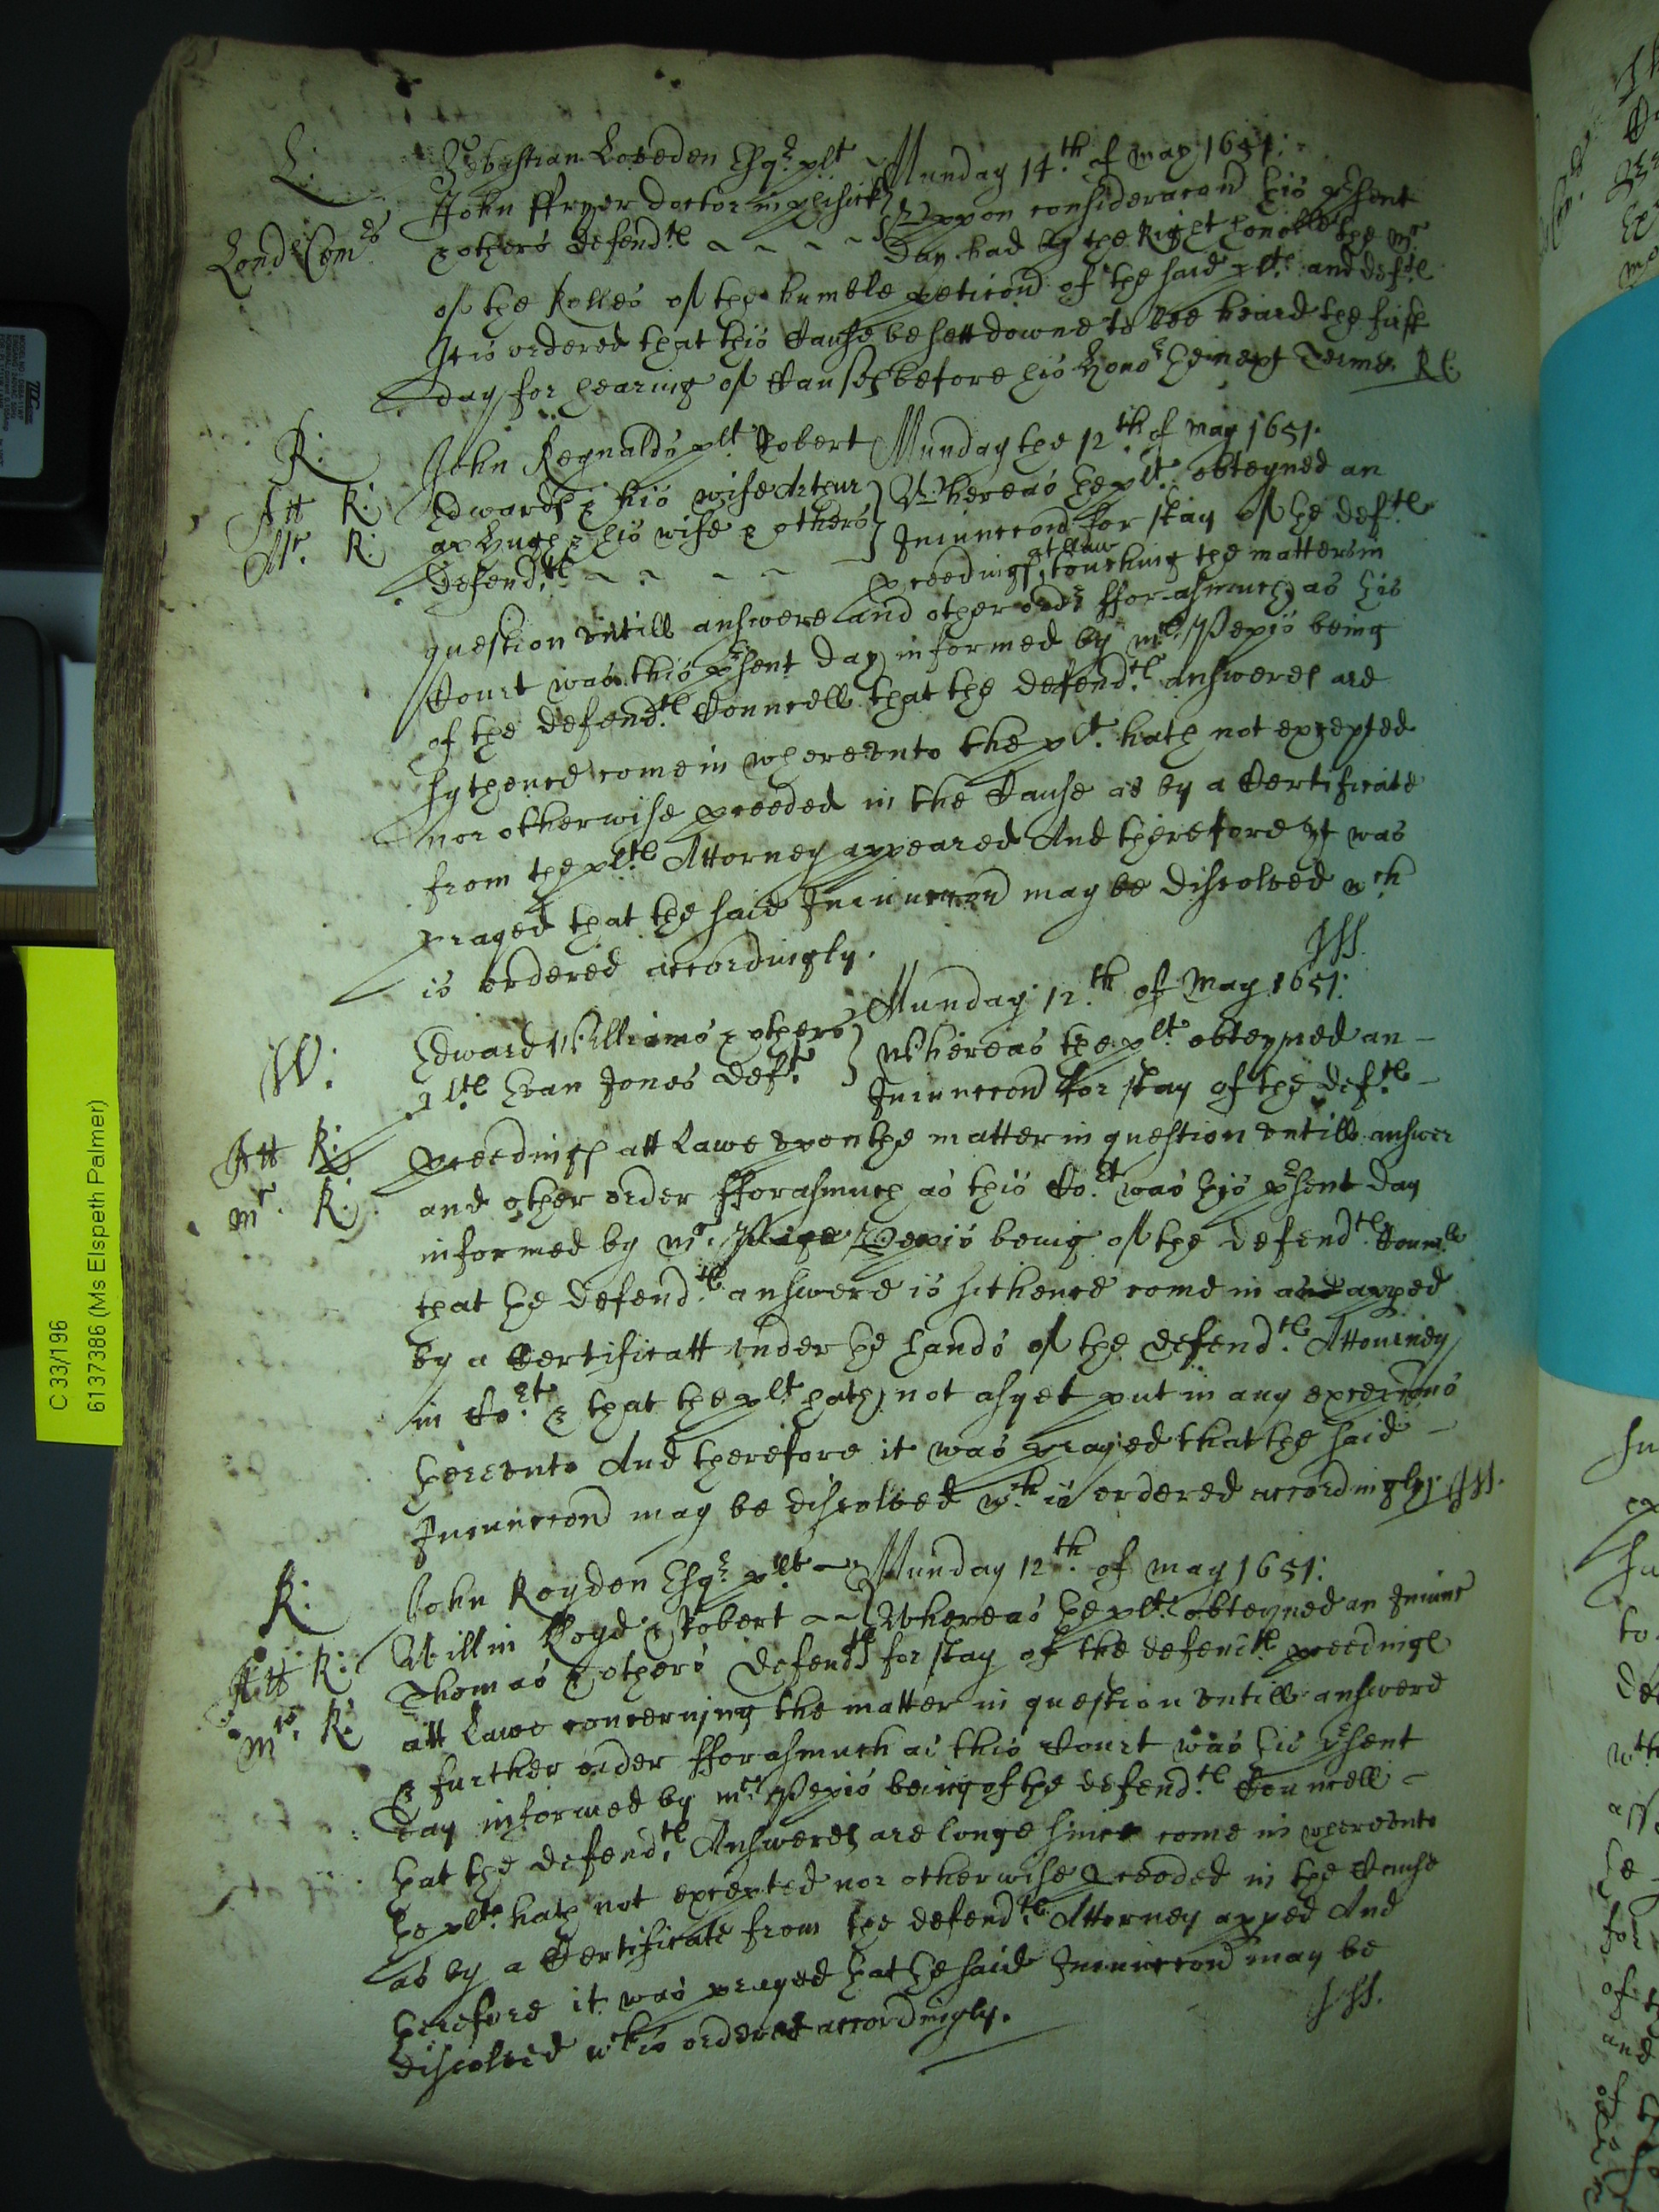 L: Sebastian Loveden Esqr. plt Munday 14th of May 1651:
John ffryer doctor in phisick Uppon consideracon this psent
Lond Com & others Defendts day had by the Right honoble the Mr.
of the Rolles of the humble peticon of the said plts. and defts
It is ordered that this Cause be sett downe to bee heard the first
day for hearing of Causes before his Honor the next Terme. RC:
R: John Reynalds plt. Robert Munday the 12th of May 1651.
Att R: Edwards & his wife Arthur Whereas the plt. obteyned an
Mr. R: ap Hugh & his wife & others Iniunccon for stay of the defts
Defendts proceedings att Law touching the matters in
question untill answere and other order fforasmuch as this
Court was this psent day informed by Mr. Pexis being
of the defendts Councell that the defendts answeres are
sythence come in whereunto the plt. hath not excepted
nor otherwise proceeded in the Cause as by a Certificate
from the plts Attorney appeared And therefore yt was
prayed that the said Iniunccon may be disolved wch
is ordered accordingly. JH.
W: Edward Williams & others Munday 12th. of May 1651:
plts Evan Jones deft. Whereas the plt. obteyned an
Iniunccon for stay of the defts
Att R: proceedings att Lawe upon the matter in question untill answer
Mr. R: and other order fforasmuch as this Cort was this psent day
informed by Mr. Pexis being of the defendts Councell
that the defendts answere is sithence come in and apped
by a Certificatt under the hands of the defendts Attourney
in Cort & that the plt hath not as yet put in any excepcons
thereunto And therefore it was prayed that the said
Iniunccon may be disolved wch is ordered accordingly. JH.
R: John Roydon Esqr. plt Munday 12th. of May 1651:
Willm Lloyd & Robert Whereas the plt. obteyned an Iniunc
Att R: Thomas & others Defendts for stay of the defendts proceedings
Mr. R: att Lawe concerning the matter in question untill answere
& further order fforasmuch as this Court was this psent
day informed by Mr. Pexis being of the defendts Councell
that the defendts Answeres are longe since come in whereunto
the plts. hath not excepted nor otherwise proceeded in the Cause
as by a Certificate from the defendts Attorney apped And
therefore it was prayed that the said Iniunccon may be
disolved wch is ordered accordingly. JH.
C 33/196
6137386 (Ms Elspeth Palmer)